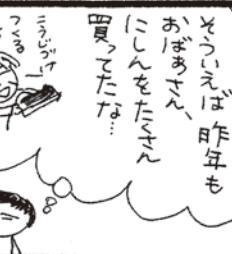 そういえば昨年も
おばあさん、
にしんをたくさん
買ってたな…
こうじづけ
つくる